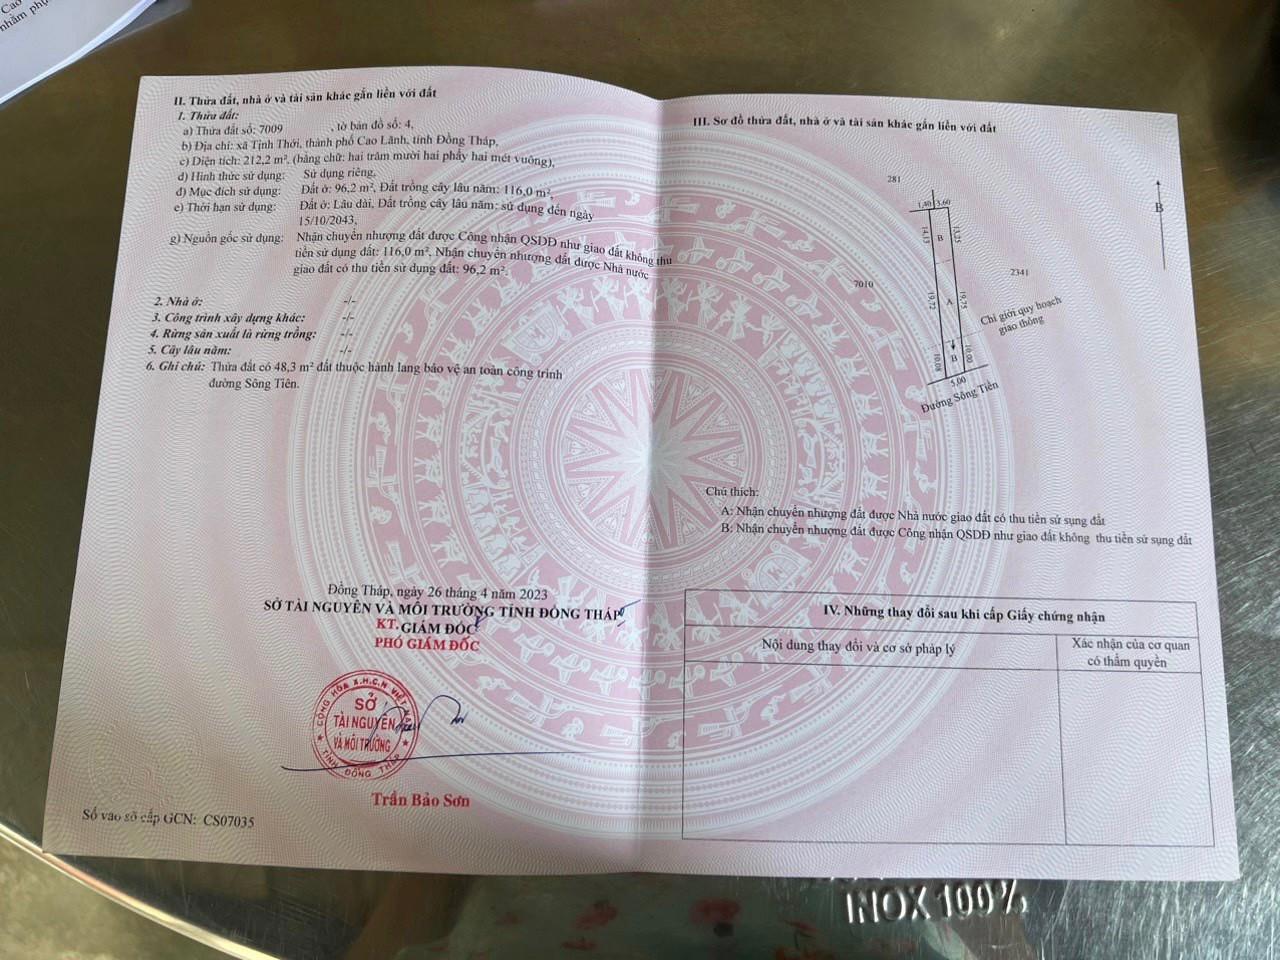 Cao
nhằm phụ
II. Thửa đất, nhà ở và tài sản khác gắn liền với đất
1. Thửa đất:
a) Thửa đất số: 7009 , tờ bản đồ số: 4,
b) Địa chỉ: xã Tịnh Thới, thành phố Cao Lãnh, tỉnh Đồng Tháp,
c) Diện tích: 212,2 m², (bằng chữ: hai trăm mười hai phẩy hai mét vuông),
d) Hình thức sử dụng: Sử dụng riêng,
đ) Mục đích sử dụng: Đất ở: 96,2 m², Đất trồng cây lâu năm: 116,0 m²,
e) Thời hạn sử dụng: Đất ở: Lâu dài, Đất trồng cây lâu năm: sử dụng đến ngày
15/10/2043,
g) Nguồn gốc sử dụng: Nhận chuyển nhượng đất được Công nhận QSDĐ như giao đất không thu
tiền sử dụng đất: 116,0 m², Nhận chuyển nhượng đất được Nhà nước
giao đất có thu tiền sử dụng đất: 96,2 m².
2. Nhà ở: -/-
3. Công trình xây dựng khác: -/-
4. Rừng sản xuất là rừng trồng: -/-
5. Cây lâu năm: -/-
6. Ghi chú: Thửa đất có 48,3 m² đất thuộc hành lang bảo vệ an toàn công trình
đường Sông Tiên.
Đồng Tháp, ngày 26 tháng 4 năm 2023
SỞ TÀI NGUYÊN VÀ MÔI TRƯỜNG TỈNH ĐỒNG THÁP
KT. GIÁM ĐỐC
PHÓ GIÁM ĐỐC
CỘNG HÒA X.H.C.N VIỆT NAM
SỞ
TÀI NGUYÊN
VÀ MÔI TRƯỜNG
TỈNH ĐỒNG THÁP
Trần Bảo Sơn
Số vào sổ cấp GCN: CS07035
III. Sơ đồ thửa đất, nhà ở và tài sản khác gắn liền với đất
281
1,40 3,60
B
14,13
B
13,25
7010
2341
19,72
A
19,75
Chỉ giới quy hoạch
giao thông
10,08
B
10,00
5,00
Đường Sông Tiên
Chú thích:
A: Nhận chuyển nhượng đất được Nhà nước giao đất có thu tiền sử sụng đất
B: Nhận chuyển nhượng đất được Công nhận QSDĐ như giao đất không thu tiền sử sụng đất
IV. Những thay đổi sau khi cấp Giấy chứng nhận
Nội dung thay đổi và cơ sở pháp lý
Xác nhận của cơ quan
có thẩm quyền
INOX 100%